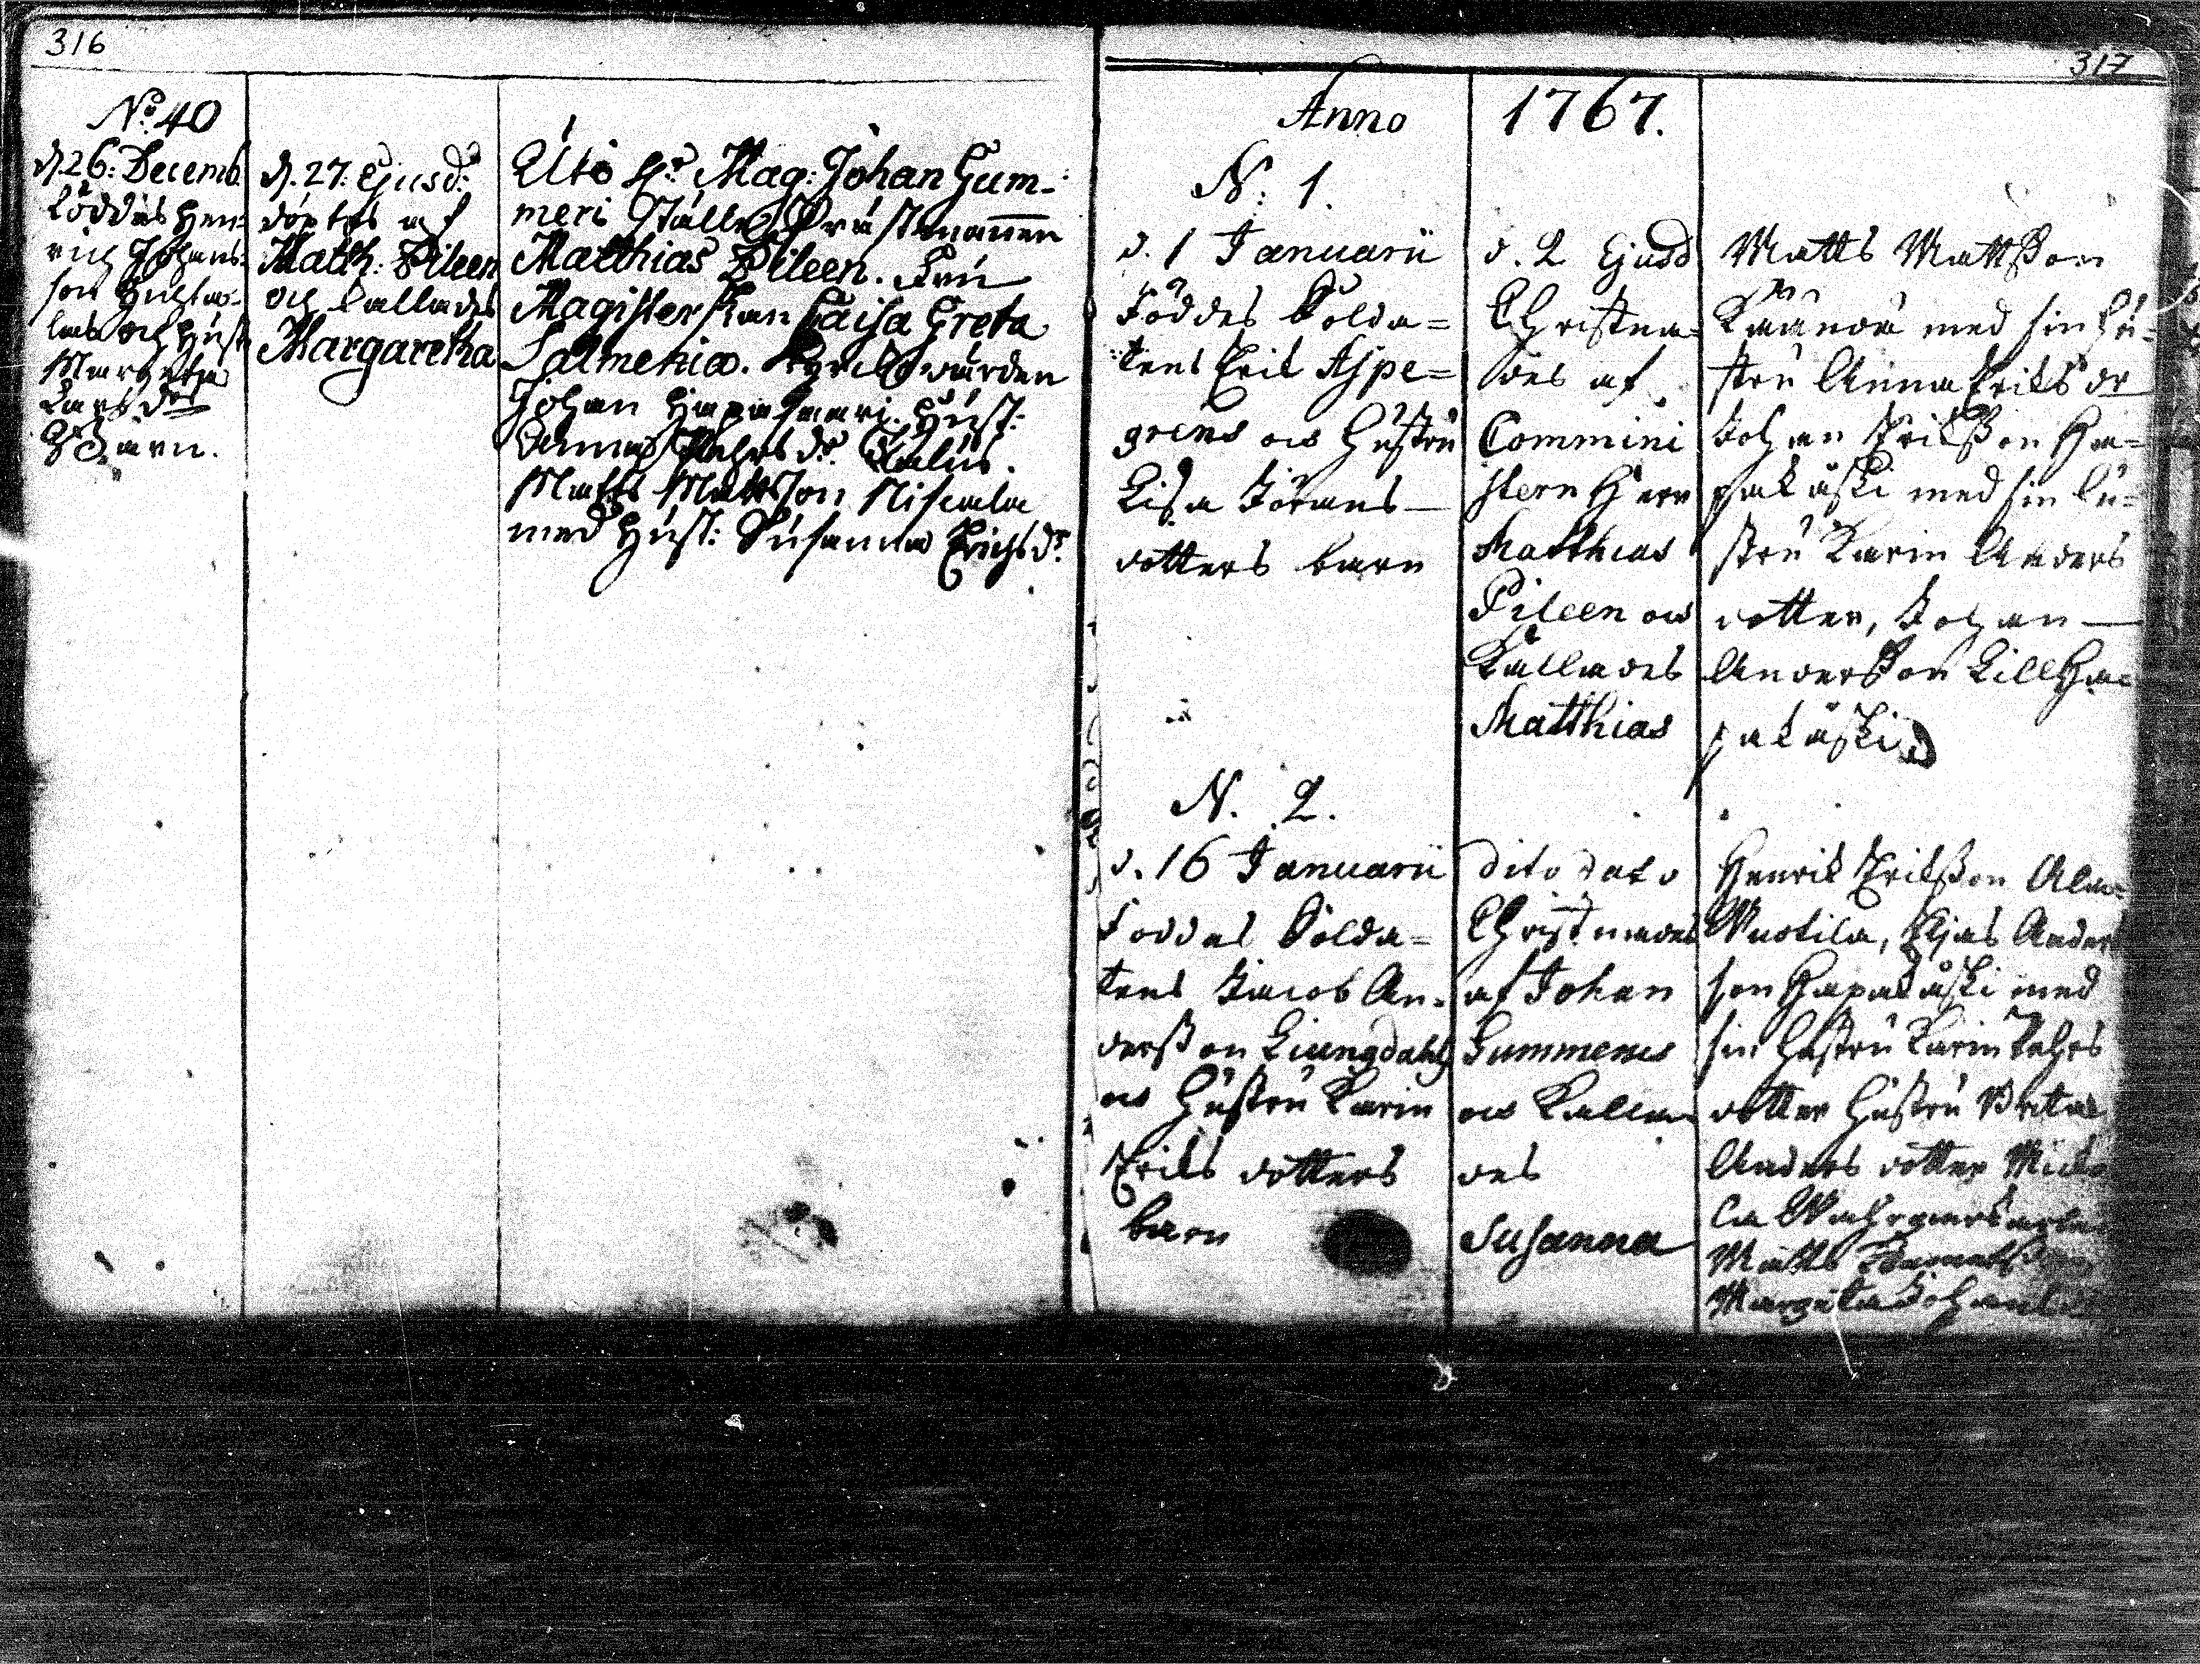 316
No. 40
d. 26. Decemb.
föddes Hen-
rich Johans-
son
och Hust
Margeta
Larsdor
Barn.
d. 27. Ejusd:
döptes af
Matth: Pileen
och kallades
Margaretha
Uti Hr Mag: Johan Gum-
meri Ställe Prästmannen
Matthias Pileen. Fru
Magisterskan Caisa Greta
Salmenia.
Johan Hapasaari. Hust:
Anna dr
Matts Mattsson
med Hust: Susanna Erichsdr
317
Anno 1767.
N: 1.
d. 1 Januarii
Föddes Solda=
tens Erik Aspe=
grens och Hustru
Lisa Jörans
dotters barn
d. 2 Ejusd
Christna=
des af
Commini
stern Herr
Matthias
Pileen och
Kallades
Matthias
Matts Mattsson
med sin hu-
stru Anna Eriks dr
Johan Eriksson Ha-
pakåski med sin hu-
stru Karin Anders
dotter, Johan
Andersson Lill Ha-
pakåski
N. 2.
d. 16 Januarii
Foddes Solda=
tens Jacob An-
dersson Liungdahls
och Hustru Karin
Eriks dotters
barn
dito dato
Christnades
af Johan
Gummerus
och Kalla
des
Susanna
Henrik Eriksson Ala-
Wuotila, Elias Anders
son Hapakåski med
sin Hustru Karin
dotter Hustru Brita
Anders dotter
la
Matts
Margeta Johans